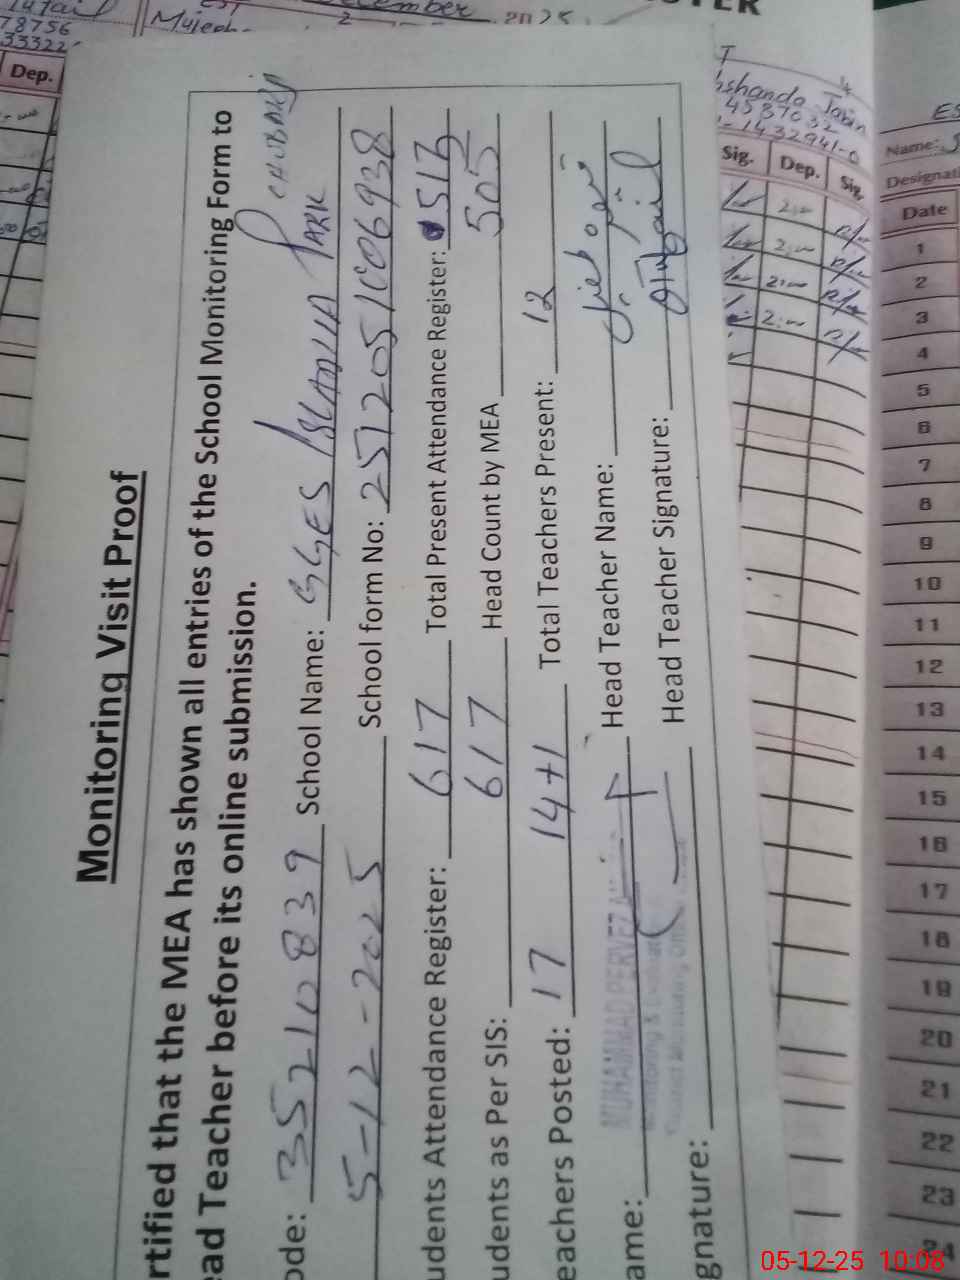 Monitoring Visit Proof
rtified that the MEA has shown all entries of the School Monitoring Form to
ead Teacher before its online submission.
ode: 35210839 School Name: GGES ISLAMIA PARK CHUBARJI
5-12-2025 School form No: 2512051006938
udents Attendance Register: 617 Total Present Attendance Register: 517
udents as Per SIS: 617 Head Count by MEA 505
eachers Posted: 17 14+1 Total Teachers Present: 12
ame: MUHAMMAD PERVEZ Head Teacher Name:
gnature: Head Teacher Signature:
Dep.
2025
Sig. Dep. Sig.
Name:
Designati
Date
1
2
3
4
5
6
7
8
9
10
11
12
13
14
15
16
17
18
19
20
21
22
23
24
05-12-25 10:08